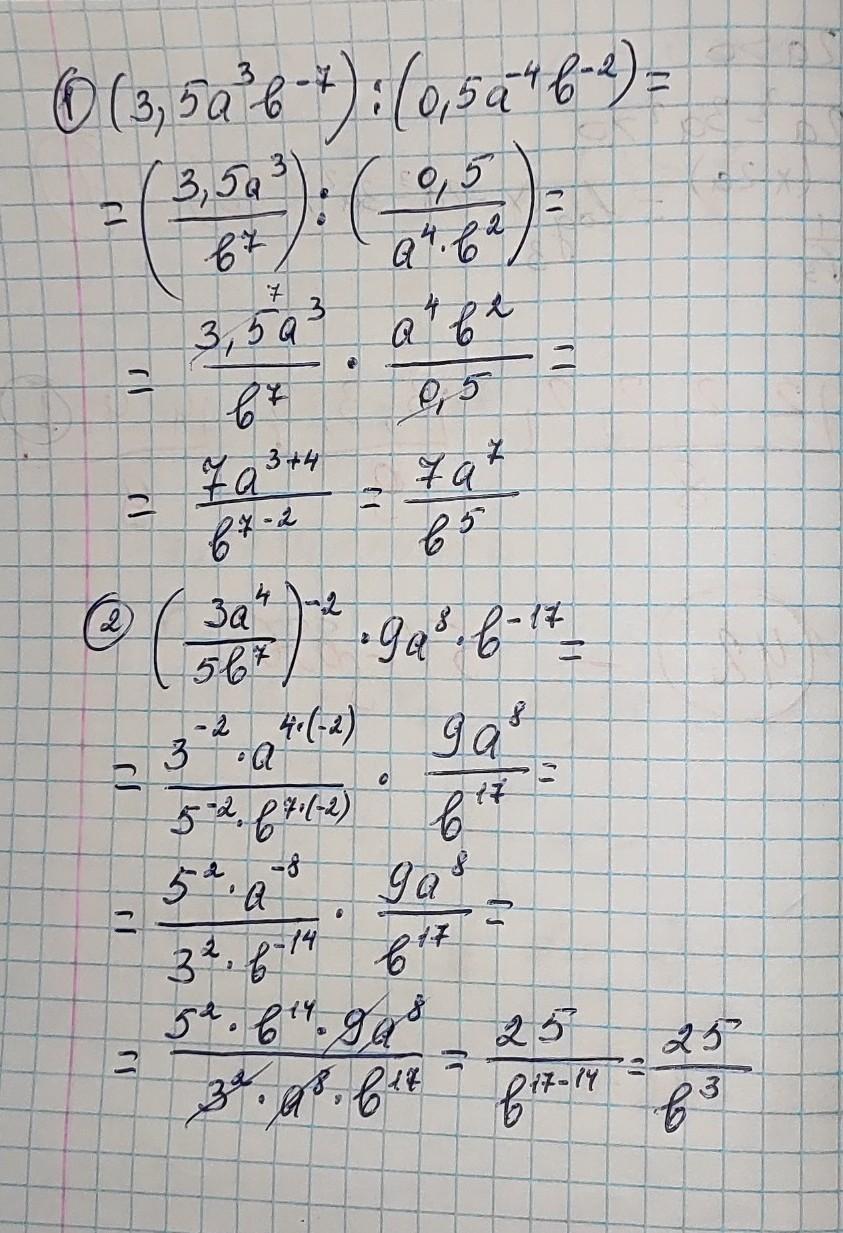 ① (3,5a³b⁻⁷) : (0,5a⁻⁴b⁻²) =
= (3,5a³/b⁷) : (0,5/a⁴·b²) =
= 3,5a³/b⁷ · a⁴b²/0,5 = 7
= 7a³⁺⁴/b⁷⁻² = 7a⁷/b⁵
② (3a⁴/5b⁷)⁻² · 9a⁸ · b⁻¹⁷ =
= 3⁻² · a⁴·⁽⁻²⁾/5⁻² · b⁷·⁽⁻²⁾ · 9a⁸/b¹⁷ =
= 5² · a⁻⁸/3² · b⁻¹⁴ · 9a⁸/b¹⁷ =
= 5² · b¹⁴ · 9a⁸/3² · a⁸ · b¹⁷ = 25/b¹⁷⁻¹⁴ = 25/b³